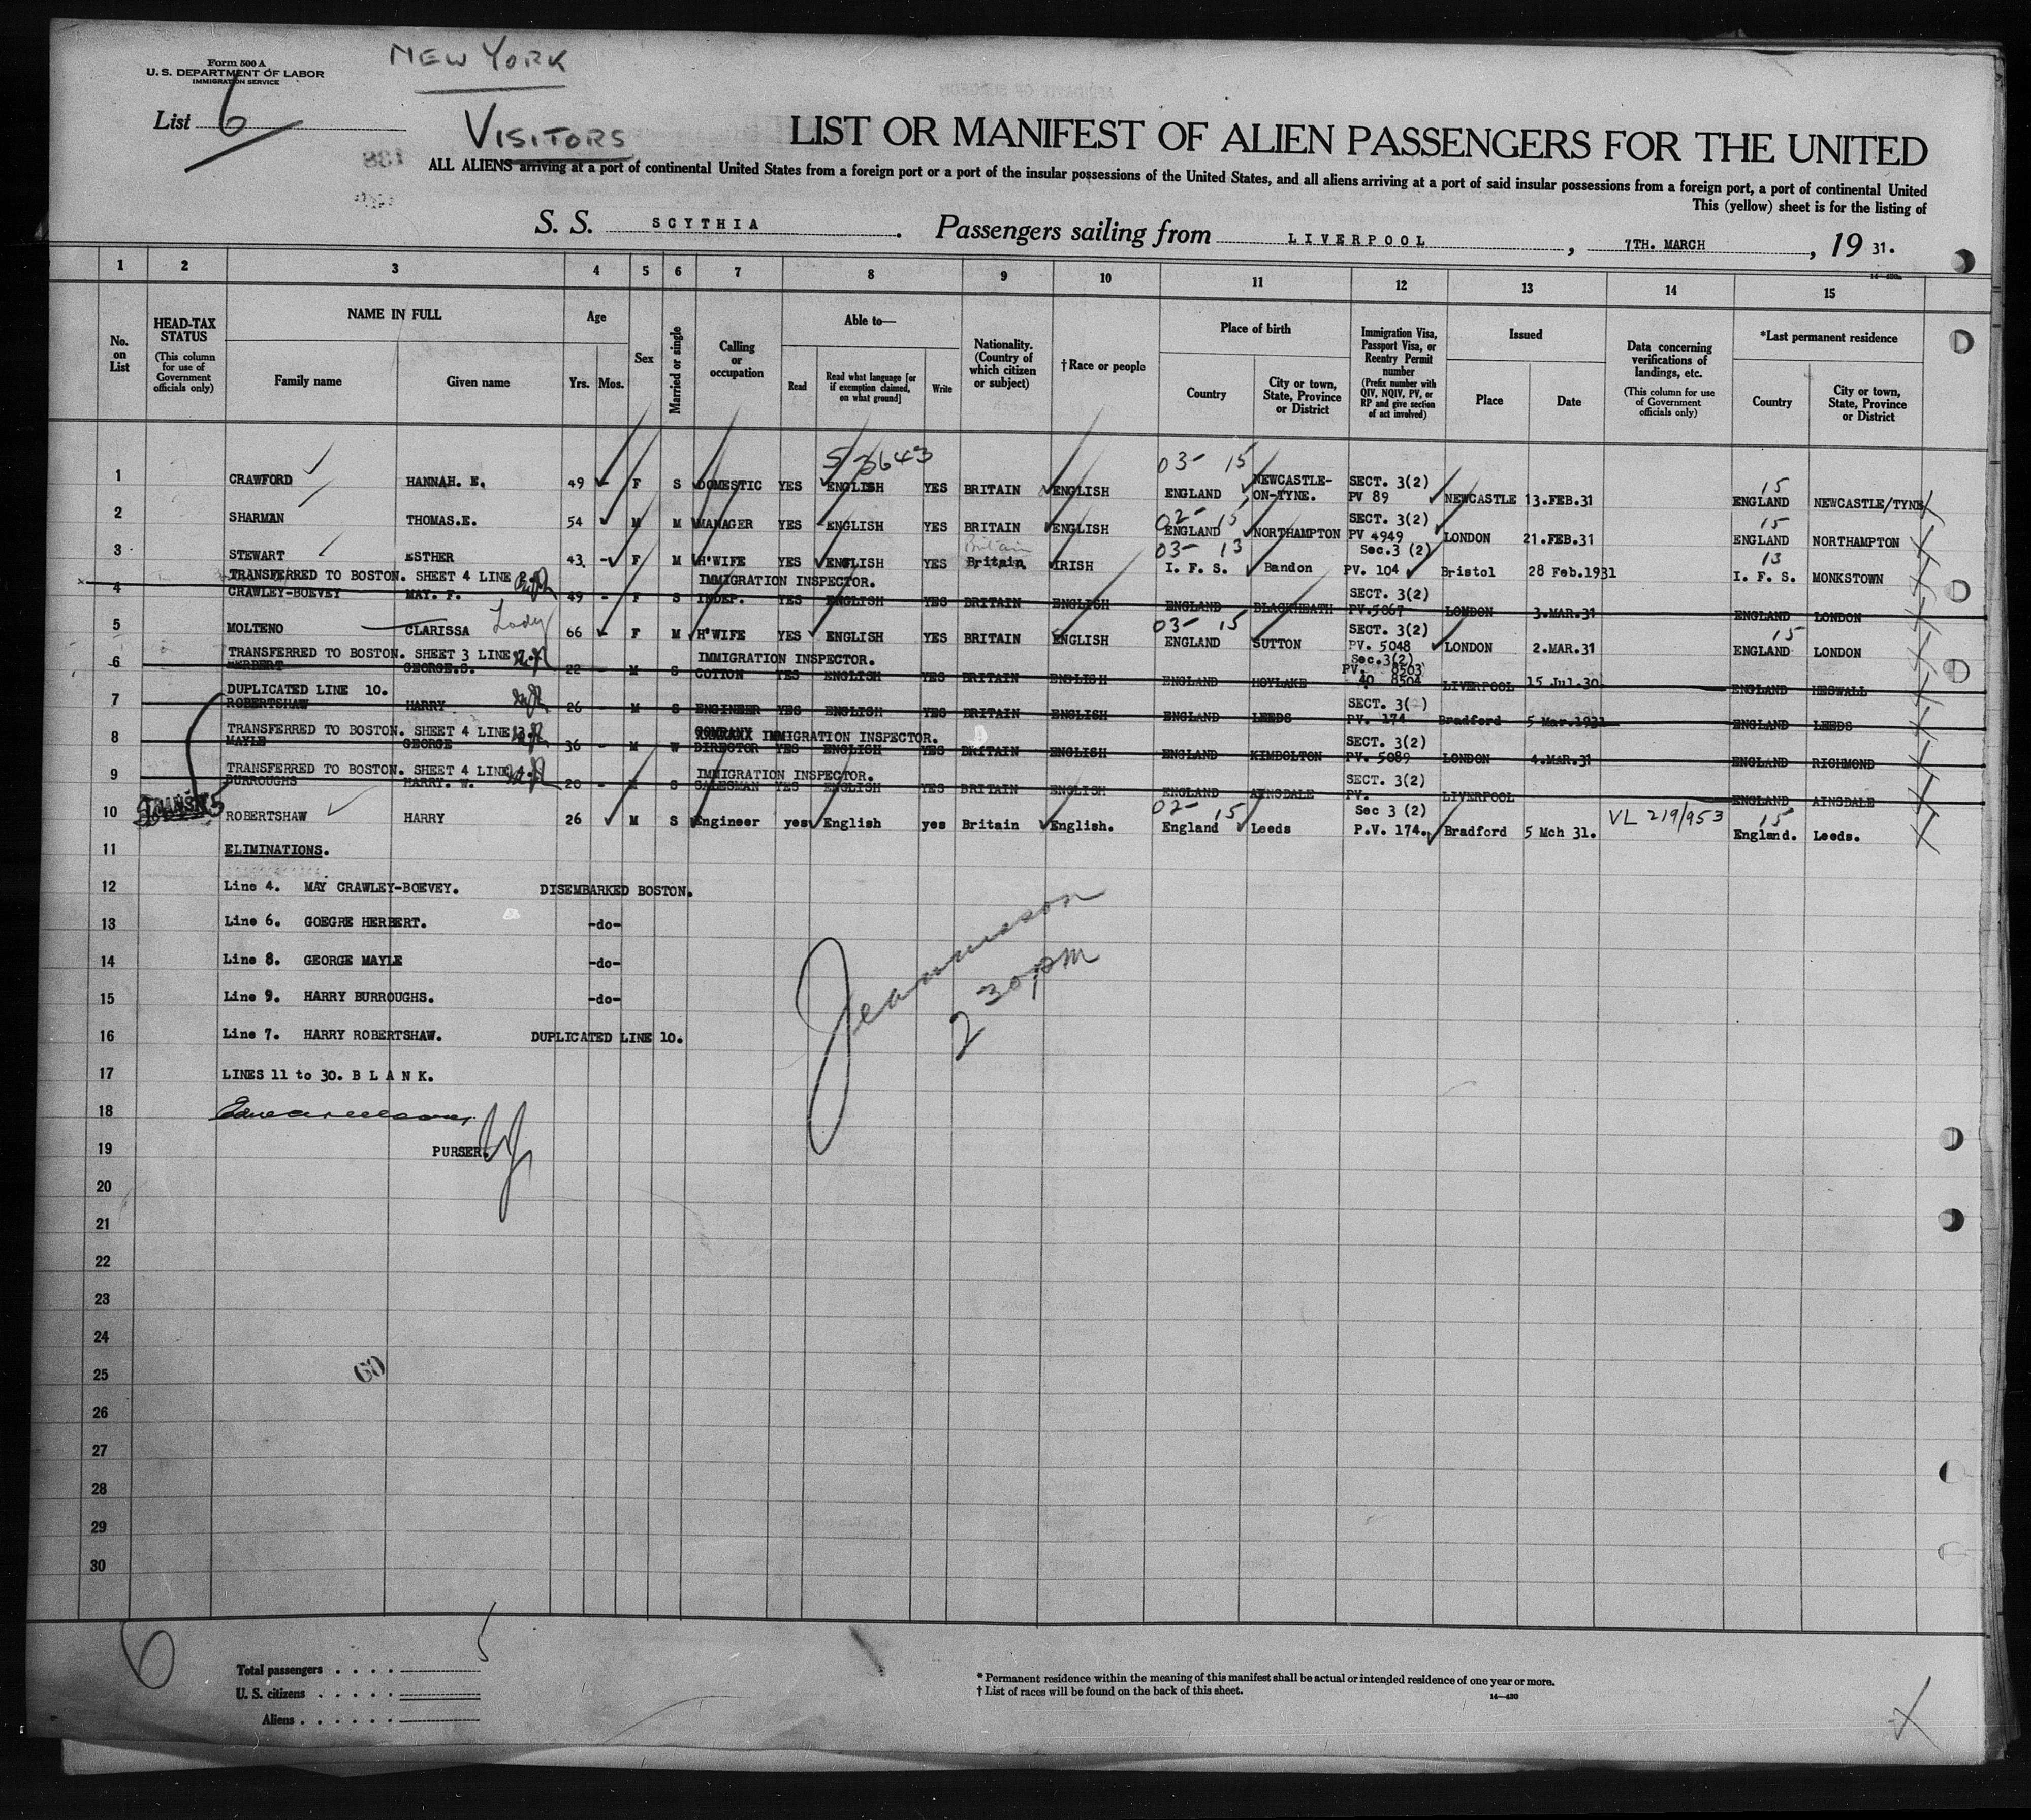 Form 500 A
U. S. DEPARTMENT OF LABOR
IMMIGRATION SERVICE
NEW YORK
List 6
VISITORS
LIST OR MANIFEST OF ALIEN PASSENGERS FOR THE UNITED
ALL ALIENS arriving at a port of continental United States from a foreign port or a port of the insular possessions of the United States, and all aliens arriving at a port of said insular possessions from a foreign port, a port of continental United
This (yellow) sheet is for the listing of
S. S. SCYTHIA. Passengers sailing from LIVERPOOL, 7TH. MARCH, 19 31.
1 2 3 4 5 6 7 8 9 10 11 12 13 14 15
No. on List
HEAD-TAX STATUS (This column for use of Government officials only)
NAME IN FULL
Family name
Given name
Age
Yrs. Mos.
Sex
Married or single
Calling or occupation
Able to—
Read
Read what language [or if exemption claimed, on what ground]
Write
Nationality. (Country of which citizen or subject)
† Race or people
Place of birth
Country
City or town, State, Province or District
Immigration Visa, Passport Visa, or Reentry Permit number (Prefix number with QIV, NQIV, PV, or RP and give section of act involved)
Issued
Place
Date
Data concerning verifications of landings, etc. (This column for use of Government officials only)
*Last permanent residence
Country
City or town, State, Province or District
14—420
5/3643
03- 15 15
1 CRAWFORD HANNAH. E. 49 - F S DOMESTIC YES ENGLISH YES BRITAIN ENGLISH ENGLAND NEWCASTLE-ON-TYNE. SECT. 3(2) PV 89 NEWCASTLE 13.FEB.31 ENGLAND NEWCASTLE/TYNE
02- 15 15
2 SHARMAN THOMAS.E. 54 M M MANAGER YES ENGLISH YES BRITAIN ENGLISH ENGLAND NORTHAMPTON SECT. 3(2) PV 4949 LONDON 21.FEB.31 ENGLAND NORTHAMPTON
Britain 03- 13 13
3 STEWART ESTHER 43 - F M H'WIFE YES ENGLISH YES Britain. IRISH I. F. S. Bandon Sec.3 (2) PV. 104 Bristol 28 Feb.1931 I. F. S. MONKSTOWN
TRANSFERRED TO BOSTON. SHEET 4 LINE IMMIGRATION INSPECTOR.
4 CRAWLEY-BOEVEY MAY. F. 49 - F S INDEP. YES ENGLISH YES BRITAIN ENGLISH ENGLAND BLACKHEATH SECT. 3(2) PV.5067 LONDON 3.MAR.31 ENGLAND LONDON
Lady 03- 15 15
5 MOLTENO CLARISSA 66 - F M H'WIFE YES ENGLISH YES BRITAIN ENGLISH ENGLAND SUTTON SECT. 3(2) PV. 5048 LONDON 2.MAR.31 ENGLAND LONDON
TRANSFERRED TO BOSTON. SHEET 3 LINE IMMIGRATION INSPECTOR.
6 HERBERT GEORGE.S. 22 - M S COTTON YES ENGLISH YES BRITAIN ENGLISH ENGLAND HOYLAKE Sec.3(2) PV. 8503 8504 LIVERPOOL 15 Jul.30. ENGLAND HESWALL
DUPLICATED LINE 10.
7 ROBERTSHAW HARRY 26 - M S ENGINEER YES ENGLISH YES BRITAIN ENGLISH ENGLAND LEEDS SECT. 3( ) PV. 174 Bradford 5 Mar.1931 ENGLAND LEEDS
TRANSFERRED TO BOSTON. SHEET 4 LINE IMMIGRATION INSPECTOR.
8 MAYLE GEORGE 36 - M W COMPANY DIRECTOR YES ENGLISH YES BRITAIN ENGLISH ENGLAND KIMBOLTON SECT. 3(2) PV. 5089 LONDON 4.MAR.31 ENGLAND RICHMOND
TRANSFERRED TO BOSTON. SHEET 4 LINE IMMIGRATION INSPECTOR.
9 BURROUGHS HARRY. W. 20 - M S SALESMAN YES ENGLISH YES BRITAIN ENGLISH ENGLAND AINSDALE SECT. 3(2) PV. LIVERPOOL ENGLAND AINSDALE
TRANSIT 02- 15 VL 219/953 15
10 ROBERTSHAW HARRY 26 M S Engineer yes English yes Britain English. England Leeds Sec 3 (2) P.V. 174. Bradford 5 Mch 31. England. Leeds.
11 ELIMINATIONS.
12 Line 4. MAY CRAWLEY-BOEVEY. DISEMBARKED BOSTON.
13 Line 6. GOEGRE HERBERT. -do-
14 Line 8. GEORGE MAYLE -do-
15 Line 9. HARRY BURROUGHS. -do-
16 Line 7. HARRY ROBERTSHAW. DUPLICATED LINE 10.
2 30 pm
17 LINES 11 to 30. B L A N K.
18
19 PURSER.
20
21
22
23
24
25
26
27
28
29
30
6
Total passengers 5
U. S. citizens
Aliens
* Permanent residence within the meaning of this manifest shall be actual or intended residence of one year or more.
† List of races will be found on the back of this sheet.
14—420